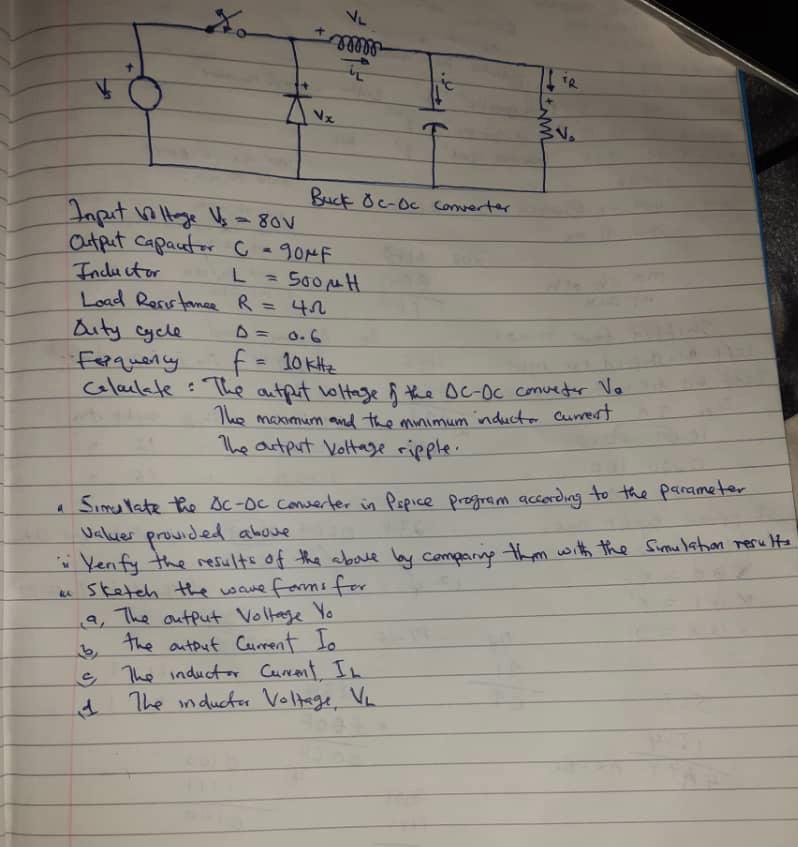 VL
+
iL
+
Vs
+
Vx
ic
iR
+
Vo
Buck DC-DC converter
Input Voltage Vs = 80V
Output capacitor C = 90μF
Inductor L = 500μH
Load Resistance R = 4Ω
Duty cycle D = 0.6
Ferquency f = 10 KHz
Calculate : The output voltage of the DC-DC converter Vo
The maximum and the minimum inductor current
The output Voltage ripple.
Simulate the DC-DC converter in Pspice program according to the parameter
values provided above
ii Verify the results of the above by comparing them with the Simulation results
iii Sketch the wave forms for
a, The output Voltage Vo
b, the output Current Io
c The inductor Current, IL
d The inductor Voltage, VL